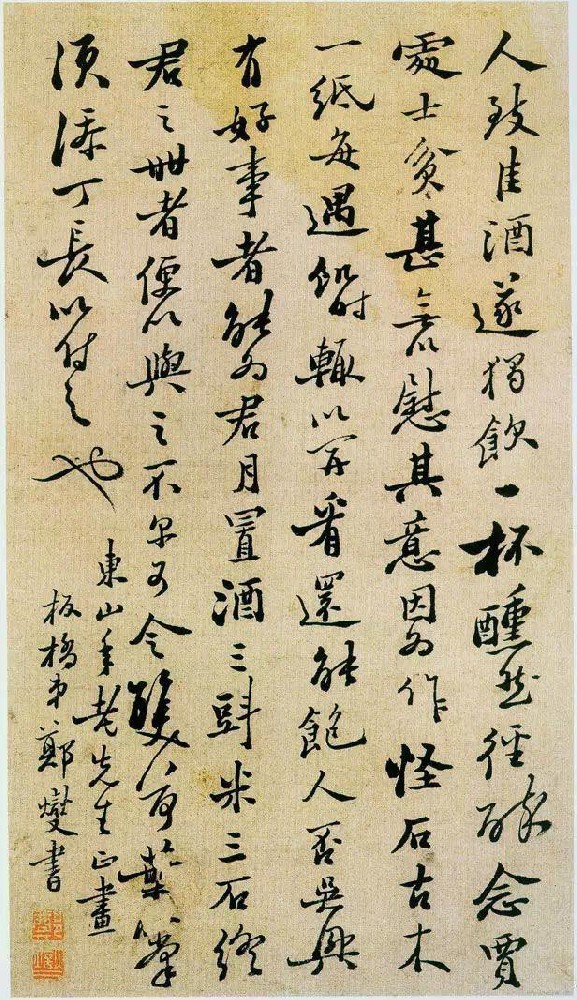 人致佳酒遂獨飲一杯醺然徑醉念賈
處士貧甚無以慰其意因為作怪石古木
一紙每遇飢時輒以開看還能飽人否吳興
有好事者能為君月置酒三㪷米三石終
君之世者便以與之不爾可令雙荷葉收掌
須添丁長以付之也
東山年老先生正畫
板橋弟鄭燮書